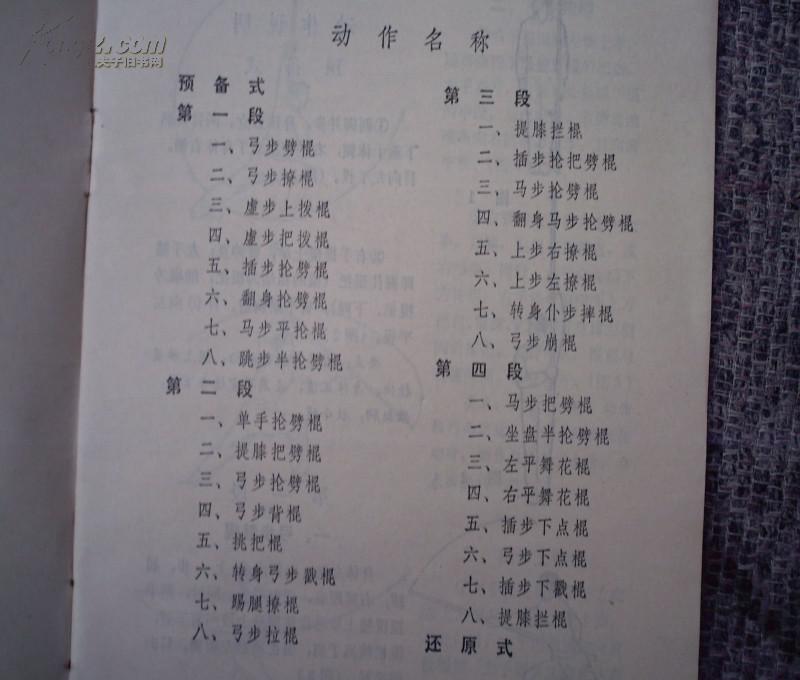 动作名称
预备式
第一段
一、弓步劈棍
二、弓步撩棍
三、虚步上拨棍
四、虚步把拨棍
五、插步抡劈棍
六、翻身抡劈棍
七、马步平抡棍
八、跳步半抡劈棍
第二段
一、单手抡劈棍
二、提膝把劈棍
三、弓步抡劈棍
四、弓步背棍
五、挑把棍
六、转身弓步戳棍
七、踢腿撩棍
八、弓步拉棍
第三段
一、提膝拦棍
二、插步抡把劈棍
三、马步抡劈棍
四、翻身马步抡劈棍
五、上步右撩棍
六、上步左撩棍
七、转身仆步摔棍
八、弓步崩棍
第四段
一、马步把劈棍
二、坐盘半抡劈棍
三、左平舞花棍
四、右平舞花棍
五、插步下点棍
六、弓步下点棍
七、插步下戳棍
八、提膝拦棍
还原式